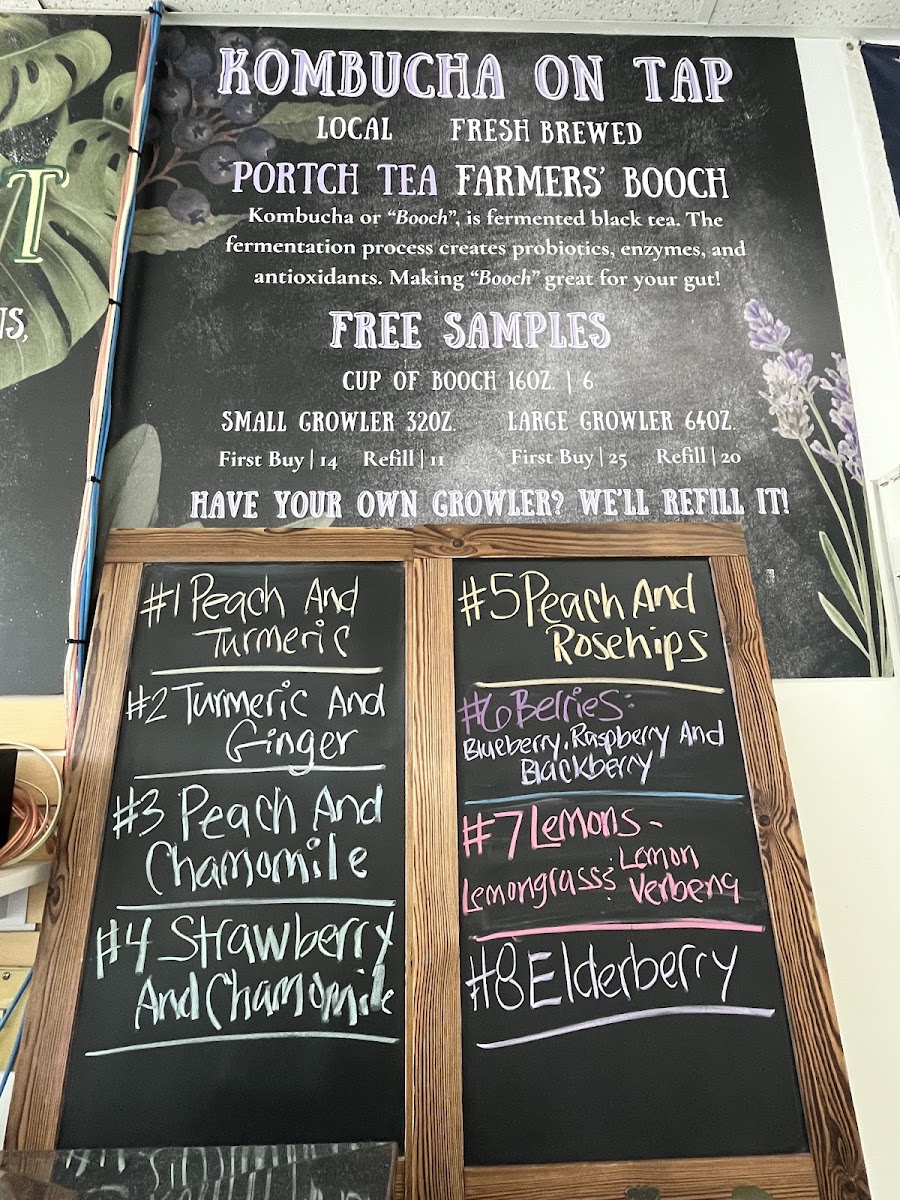 KOMBUCHA ON TAP
LOCAL FRESH BREWED
PORTCH TEA FARMERS' BOOCH
Kombucha or "Booch", is fermented black tea. The
fermentation process creates probiotics, enzymes, and
antioxidants. Making "Booch" great for your gut!
FREE SAMPLES
CUP OF BOOCH 16OZ. | 6
SMALL GROWLER 32OZ. LARGE GROWLER 64OZ.
First Buy | 14 Refill | 11 First Buy | 25 Refill | 20
HAVE YOUR OWN GROWLER? WE'LL REFILL IT!
#1 Peach And
Turmeric
#2 Turmeric And
Ginger
#3 Peach And
Chamomile
#4 Strawberry
And Chamomile
#5 Peach And
Rosehips
#6 Berries:
Blueberry, Raspberry And
Blackberry
#7 Lemons -
Lemongrass; Lemon
Verbena
#8 Elderberry